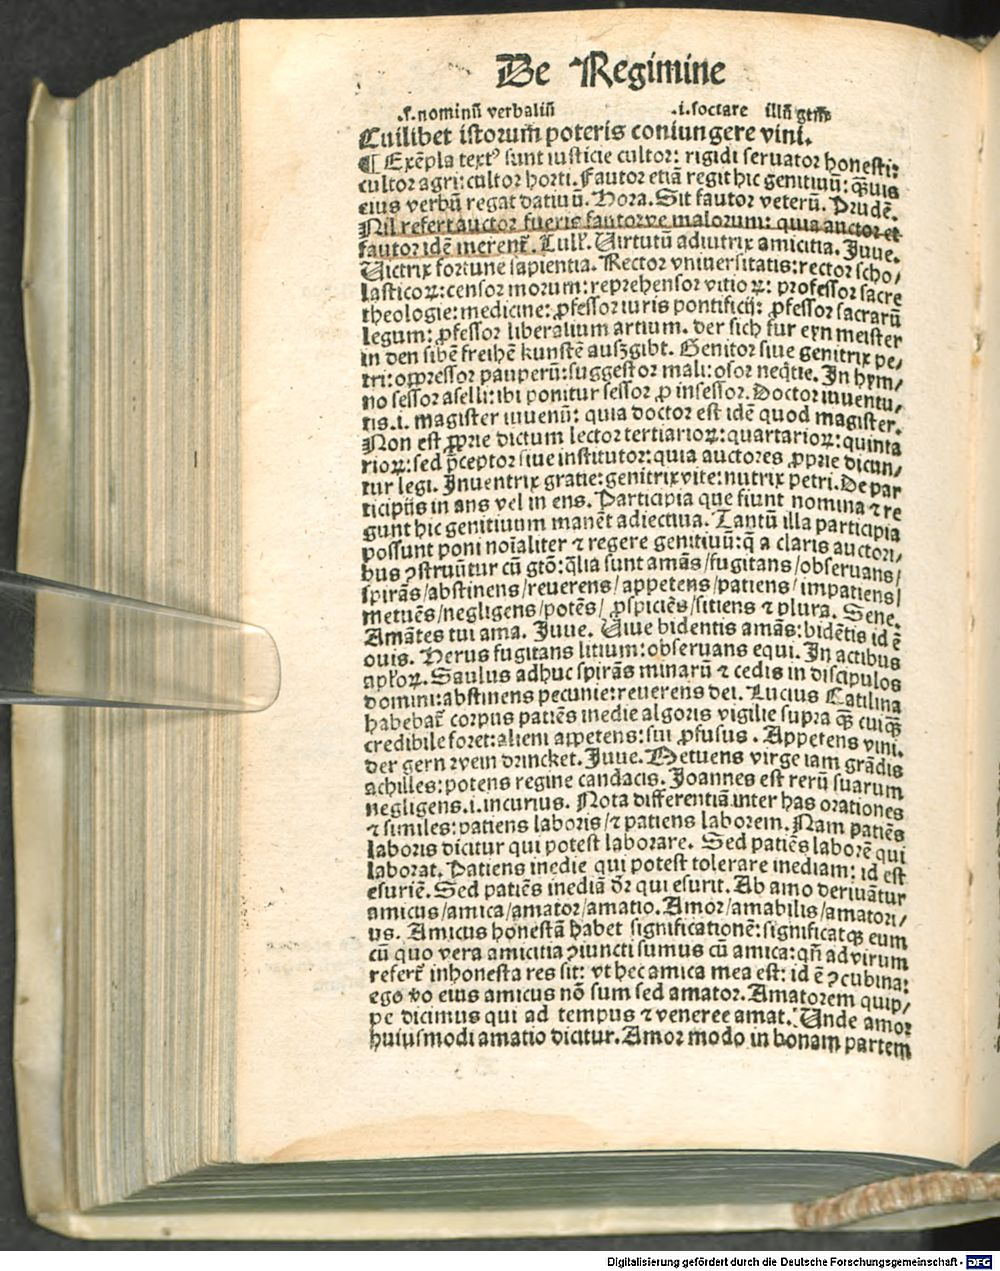 De Regimine
.s. nominū verbaliū .i. sociare illū gtm̄
Cuilibet istorum poteris coniungere vini.
¶ Exēpla textꝰ sunt iusticie cultor: rigidi seruator honesti:
cultor agri: cultor horti. Fautor etiā regit hic genitiuū: q̄uis
eius verbū regat datiuū. Hora. Sit fautor veterū. Prudē.
Nil refert auctor fueris fautorve malorum: quia auctor et
fautor idē merent᷑. Tull᷑. Virtutū adiutrix amicitia. Juue.
Victrix fortune sapientia. Rector vniuersitatis: rector scho/
lasticoꝝ: censor morum: reprehensor vitioꝝ: professor sacre
theologie: medicine: ꝓfessor iuris pontificij: ꝓfessor sacrarū
legum: ꝓfessor liberalium artium. der sich fur eyn meister
in den sibē freihē kunstē auszgibt. Genitor siue genitrix pe/
tri: oppressor pauperū: suggestor mali: osor neq̄tie. In hym/
no sessor aselli: ibi ponitur sessor ꝓ insessor. Doctor iuuentu/
tis .i. magister iuuenū: quia doctor est idē quod magister.
Non est ꝓprie dictum lector tertiarioꝝ: quartarioꝝ: quinta
rioꝝ: sed p̄ceptor siue institutor: quia auctores ꝓprie dicun/
tur legi. Inuentrix gratie: genitrix vite: nutrix petri. De par
ticipijs in ans vel in ens. Participia que fiunt nomina ⁊ re
gunt hic genitiuum manēt adiectiua. Tantū illa participia
possunt poni noīaliter ⁊ regere genitiuū: q̄ a claris auctori/
bus ꝯstruūtur cū gtō: q̄lia sunt amās/ fugitans/ obseruans/
spirās/ abstinens/ reuerens/ appetens/ patiens/ impatiens/
metuēs/ negligens/ potēs/ ꝓspiciēs/ sitiens ⁊ plura. Sene.
Amātes tui ama. Juue. Viue bidentis amās: bidētis id ē
ouis. Herus fugitans litium: obseruans equi. In actibus
apl'oꝝ. Saulus adhuc spirās minarū ⁊ cedis in discipulos
domini: abstinens pecunie: reuerens dei. Lucius Catilina
habebat᷑ corpus patiēs inedie algoris vigilie supra q̄ȝ cuiq̄ȝ
credibile foret: alieni appetens: sui ꝓfusus. Appetens vini.
der gern wein drincket. Juue. Metuens virge iam grādis
achilles: potens regine candacis. Joannes est rerū suarum
negligens .i. incurius. Nota differentiā inter has orationes
⁊ similes: patiens laboris/ ⁊ patiens laborem. Nam patiēs
laboris dicitur qui potest laborare. Sed patiēs laborē qui
laborat. Patiens inedie qui potest tolerare inediam: id est
esuriē. Sed patiēs inediā dr̄ qui esurit. Ab amo deriuātur
amicus/ amica/ amator/ amatio. Amor/ amabilis/ amatori/
us. Amicus honestā habet significationē: significat qȝ eum
cū quo vera amicitia ꝯiuncti sumus cū amica: qn̄ ad virum
refert᷑ inhonesta res sit: vt hec amica mea est: id ē ꝯcubina:
ego v̄o eius amicus nō sum sed amator. Amatorem quip/
pe dicimus qui ad tempus ⁊ veneree amat. Unde amor
huiusmodi amatio dicitur. Amor modo in bonam partem
Digitalisierung gefördert durch die Deutsche Forschungsgemeinschaft - DFG